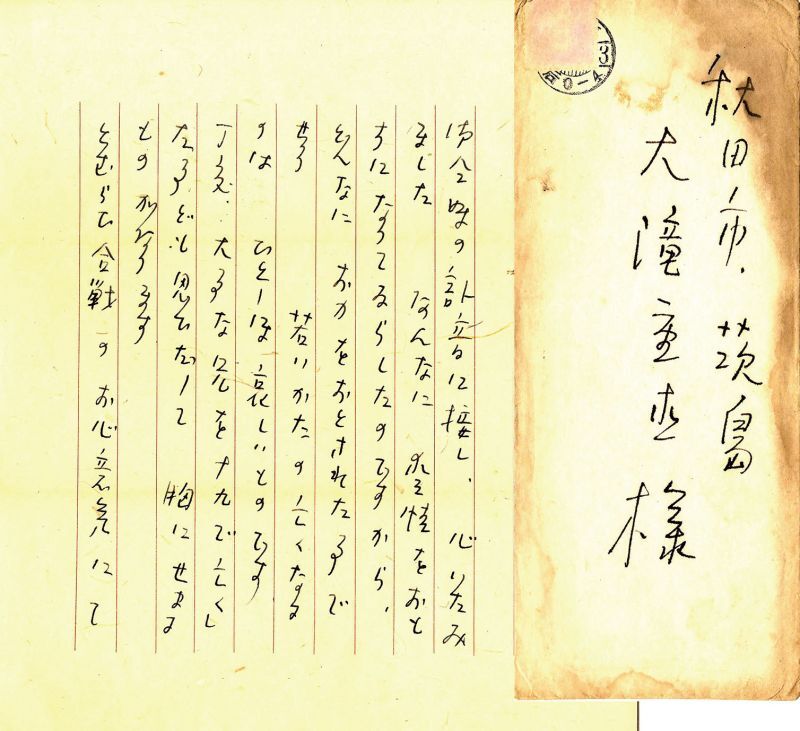 訃音に接し、心いたみ
ました あんなに 愛情をおも
ちになってゐらしたのですから、
どんなに おカをおとされたことで
せう 若いかたの亡くなる
のは ひとしほ哀しいものです
丁度、大事な兄を十九で亡くし
たことども思ひだして 胸にせまる
ものがあります
とむらひ合戦のお心意気にて
秋田市、茨島
大 重 様